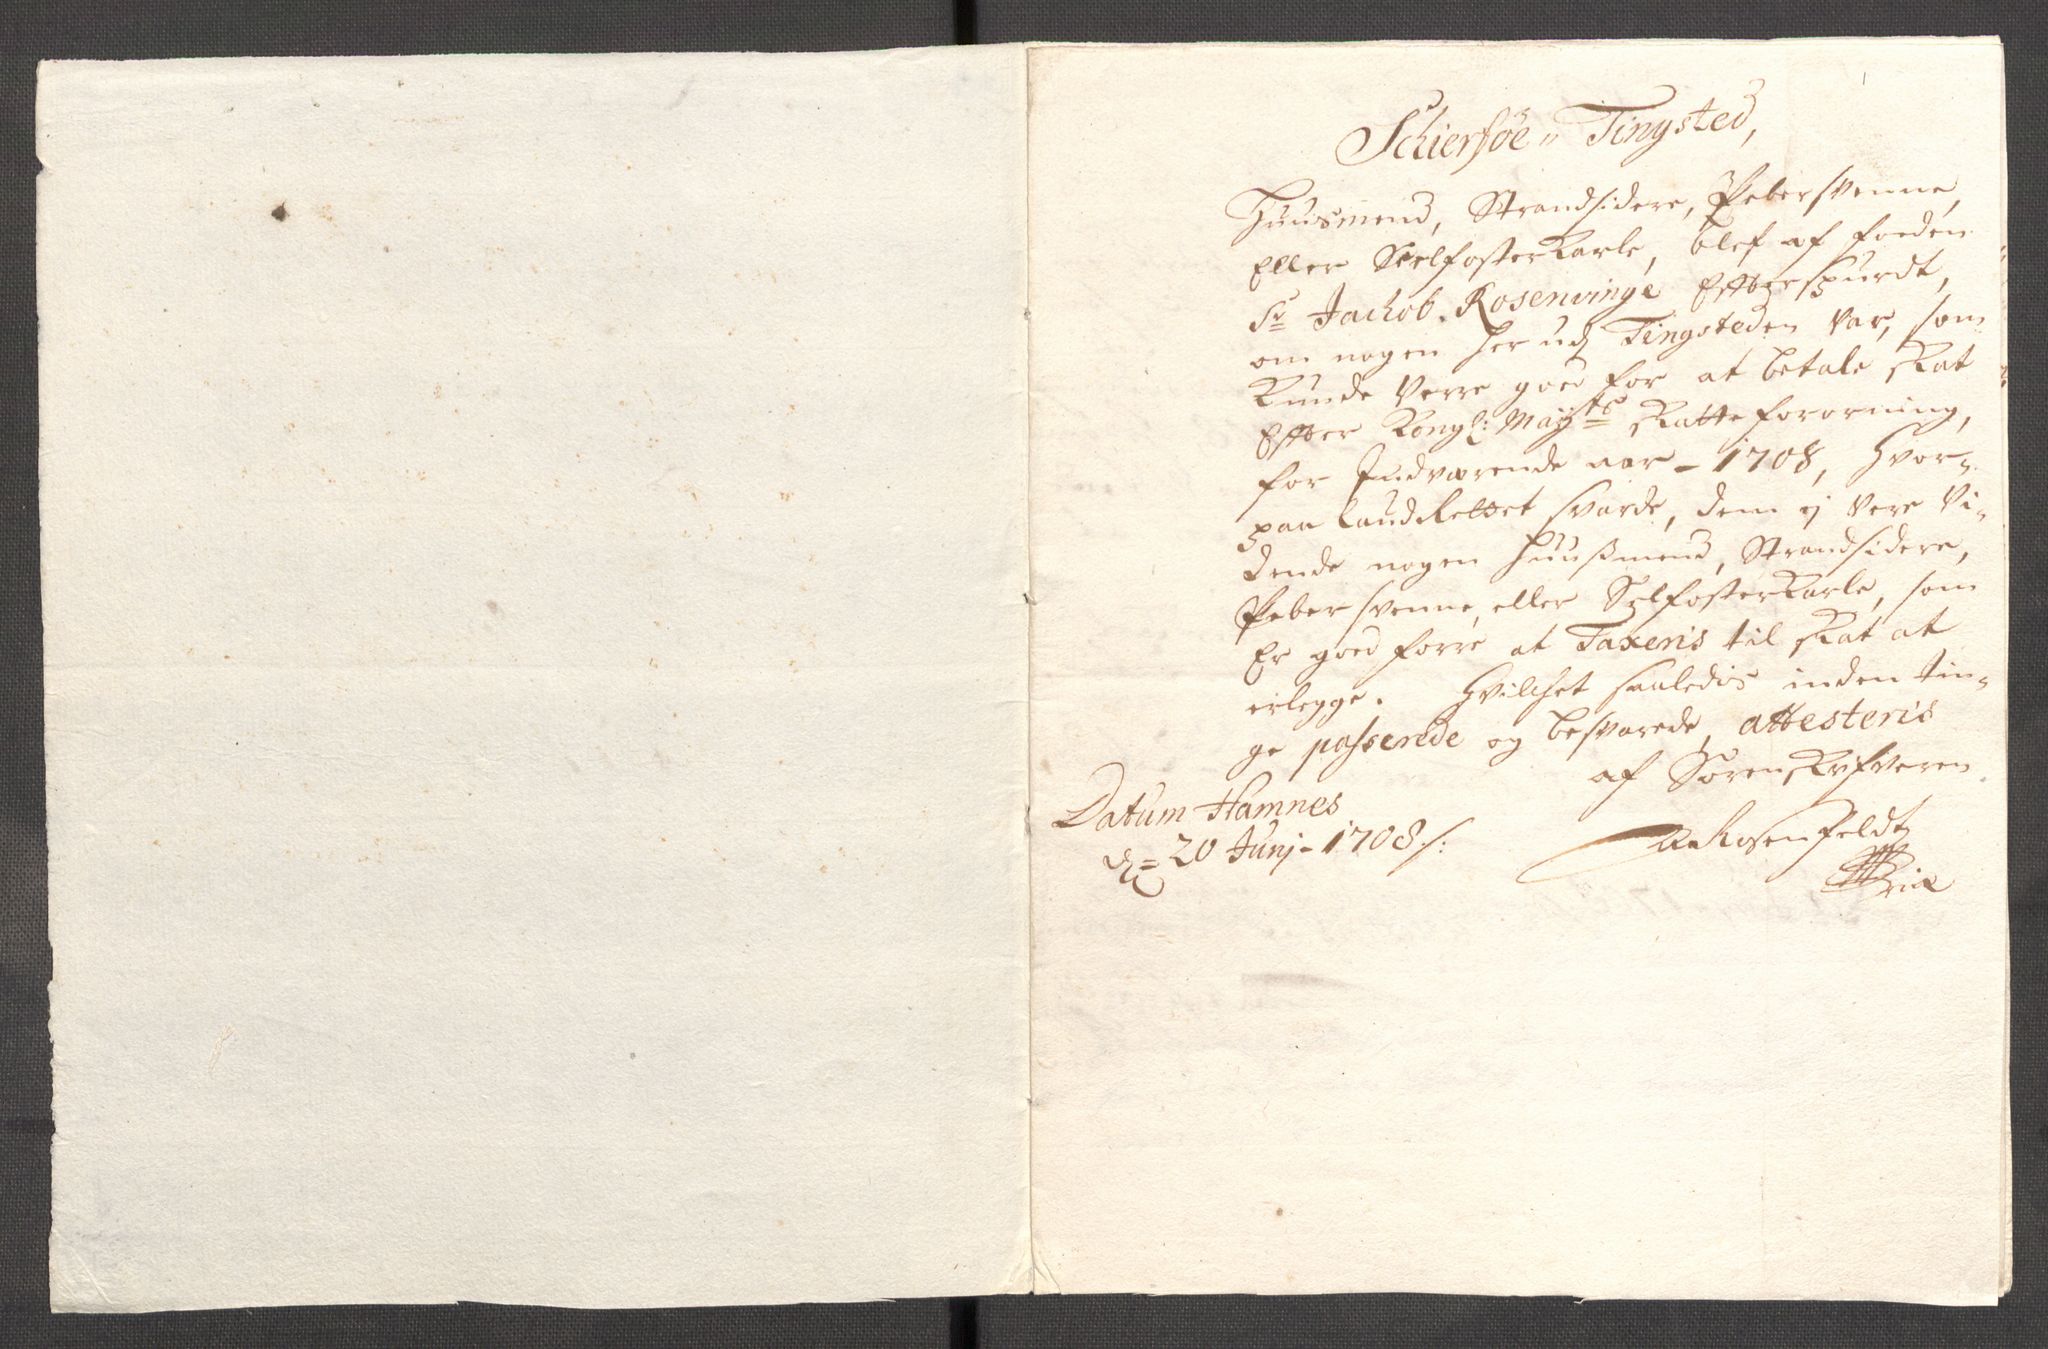 Schierføe Tingsted,
Huusmend, Strandsidere, Pebersvenne,
Eller Selfosterkarle, blef af
Sr Jachob. Rosenvinge Effterspurdt,
om nogen her udj Tingsteden var, som
kunde verre goed for at betale skat
Effter Kongl: Maÿts skatte fororning,
for Indværende aar - 1708, hvor-
paa Laudrettet svarde, dem ej vere vi-
dende nogen Huusmend, Strandsidere,
Pebersvenne, eller Selfosterkarle, som
Er goed forre at Taxeris til skat at
erlegge. Hvilchet saaledis inden tin-
ge passerede og besvarede, attesteris
af Sorenskrifveren
Datum Hamnes
d. 20 Junj - 1708
Rosenfeldt